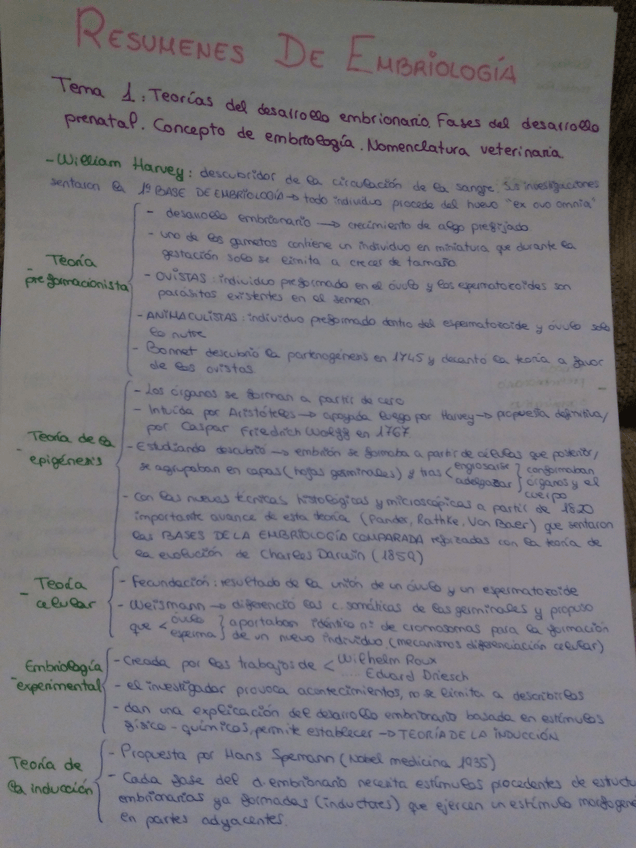 RESUMENES DE EMBRIOLOGÍA
Tema 1: Teorías del desarrollo embrionario. Fases del desarrollo
prenatal. Concepto de embriología. Nomenclatura veterinaria
- William Harvey: descubridor de la circulación de la sangre. Sus investigaciones
sentaron la 1º BASE DE EMBRIOLOGÍA → todo individuo procede del huevo "ex ovo omnia"
- Teoría preformacionista
- desarrollo embrionario → crecimiento de algo prefijado
- uno de los gametos contiene un individuo en miniatura que durante la
gestación solo se limita a crecer de tamaño
- OVISTAS: individuo preformado en el óvulo y los espermatozoides son
parásitos existentes en el semen.
- ANIMACULISTAS: individuo preformado dentro del espermatozoide y óvulo solo
lo nutre
- Bonnet descubrió la partenogénesis en 1745 y decantó la teoría a favor
de los ovistas.
- Teoría de la epigénesis
- Los órganos se forman a partir de cero
- Intuida por Aristóteles → apoyada luego por Harvey → propuesta definitiva,
por Caspar Friedrich Wolff en 1767
- Estudiando descubrió → embrión se formaba a partir de células que posterior,
se agrupaban en capas (hojas germinales) y tras < engrosarse adelgazar } conformaban órganos y el cuerpo
- Con las nuevas técnicas histológicas y microscópicas a partir de 1820
importante avance de esta teoría (Pander, Rathke, Von Baer) que sentaron
las BASES DE LA EMBRIOLOGÍA COMPARADA reforzadas con la teoría de
la evolución de Charles Darwin (1859)
- Teoría celular
- Fecundación: resultado de la unión de un óvulo y un espermatozoide
- Weismann → diferenció las c. somáticas de las germinales y propuso
que < óvulo esperma } aportaban idéntico nº de cromosomas para la formación
de un nuevo individuo (mecanismos diferenciación celular)
- Embriología experimental
- Creada por los trabajos de < Wilhelm Roux
Eduard Driesch
- el investigador provoca acontecimientos, no se limita a describirlos
- dan una explicación del desarrollo embrionario basada en estímulos
físico-químicos, permite establecer → TEORÍA DE LA INDUCCIÓN
Teoría de la inducción
- Propuesta por Hans Spemann (Nobel medicina 1935)
- Cada fase del d. embrionario necesita estímulos procedentes de estruct
embrionarias ya formadas (inductores) que ejercen un estímulo morfogene
en partes adyacentes.